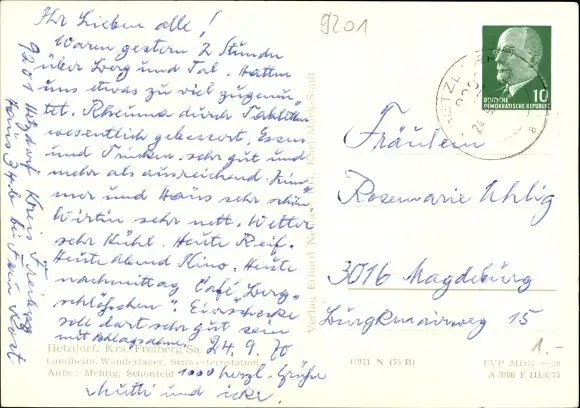 9201
Ihr Lieben alle!
Waren gestern 2 Stunden
über Berg und Tal. Hatten
uns etwas zu viel zugemu-
tet. Rheuma durch Tabletten
wesentlich gebessert. Essen
und Trinken sehr gut und
mehr als ausreichend. Zim-
mer und Haus sehr schön
Wirtin sehr nett. Wetter
sehr kühl. Heute Reif.
Heute Abend Kino. Heute
nachmittag "Café Berg-
schlößchen". Eisschecke
soll dort sehr gut sein
mit Schlagsahne. 24.9.70
1000 herzl. Grüße
Mutti und icke.
9201 Hetzdorf Kreis Freiberg
Haus 34b bei Frau Jost
DEUTSCHE
DEMOKRATISCHE REPUBLIK
10
Fräulein
Rosemarie Uhlig
3016 Magdeburg
Burgkmairweg 15
1.-
Hetzdorf, Krs. Freiberg/Sa.
Langheim, Wanderlager, Schwesternstation
Aufn.: Mehlig, Schönfeld
Verlag Erhard Karl-Marx-Stadt
11971 N (75 B)
EVP MDN -20
A 3/66 F 211/6/75